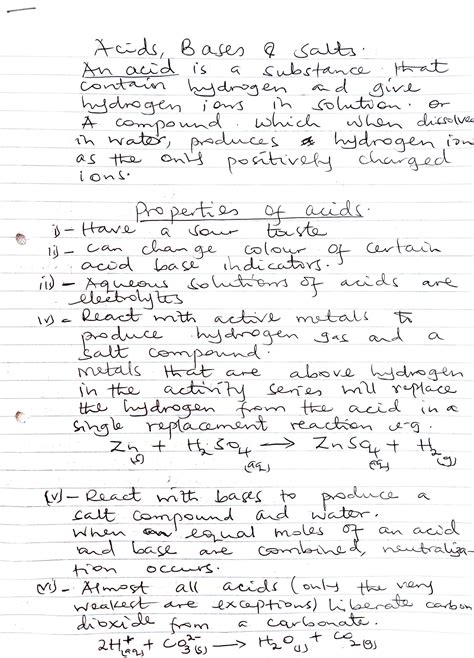 Acids, Bases & Salts.
An acid is a substance that
contain hydrogen and give
hydrogen ions in solution. or
A compound which when dissolved
in water, produces hydrogen ion
as the only positively charged
ions.
Properties of acids.
i) - Have a sour taste
ii) - can change colour of certain
acid base indicators.
iii) - Aqueous solutions of acids are
electrolytes
iv) - React with active metals to
produce hydrogen gas and a
salt compound.
metals that are above hydrogen
in the activity series will replace
the hydrogen from the acid in a
single replacement reaction e.g.
Zn(s) + H2SO4(aq) → ZnSO4(aq) + H2(g)
(v) - React with bases to produce a
salt compound and water.
when equal moles of an acid
and base are combined, neutraliza-
tion occurs.
(vi) - Almost all acids (only the very
weakest are exceptions) liberate carbon
dioxide from a carbonate.
2H+(aq) + CO3 2-(s) → H2O(l) + CO2(g)